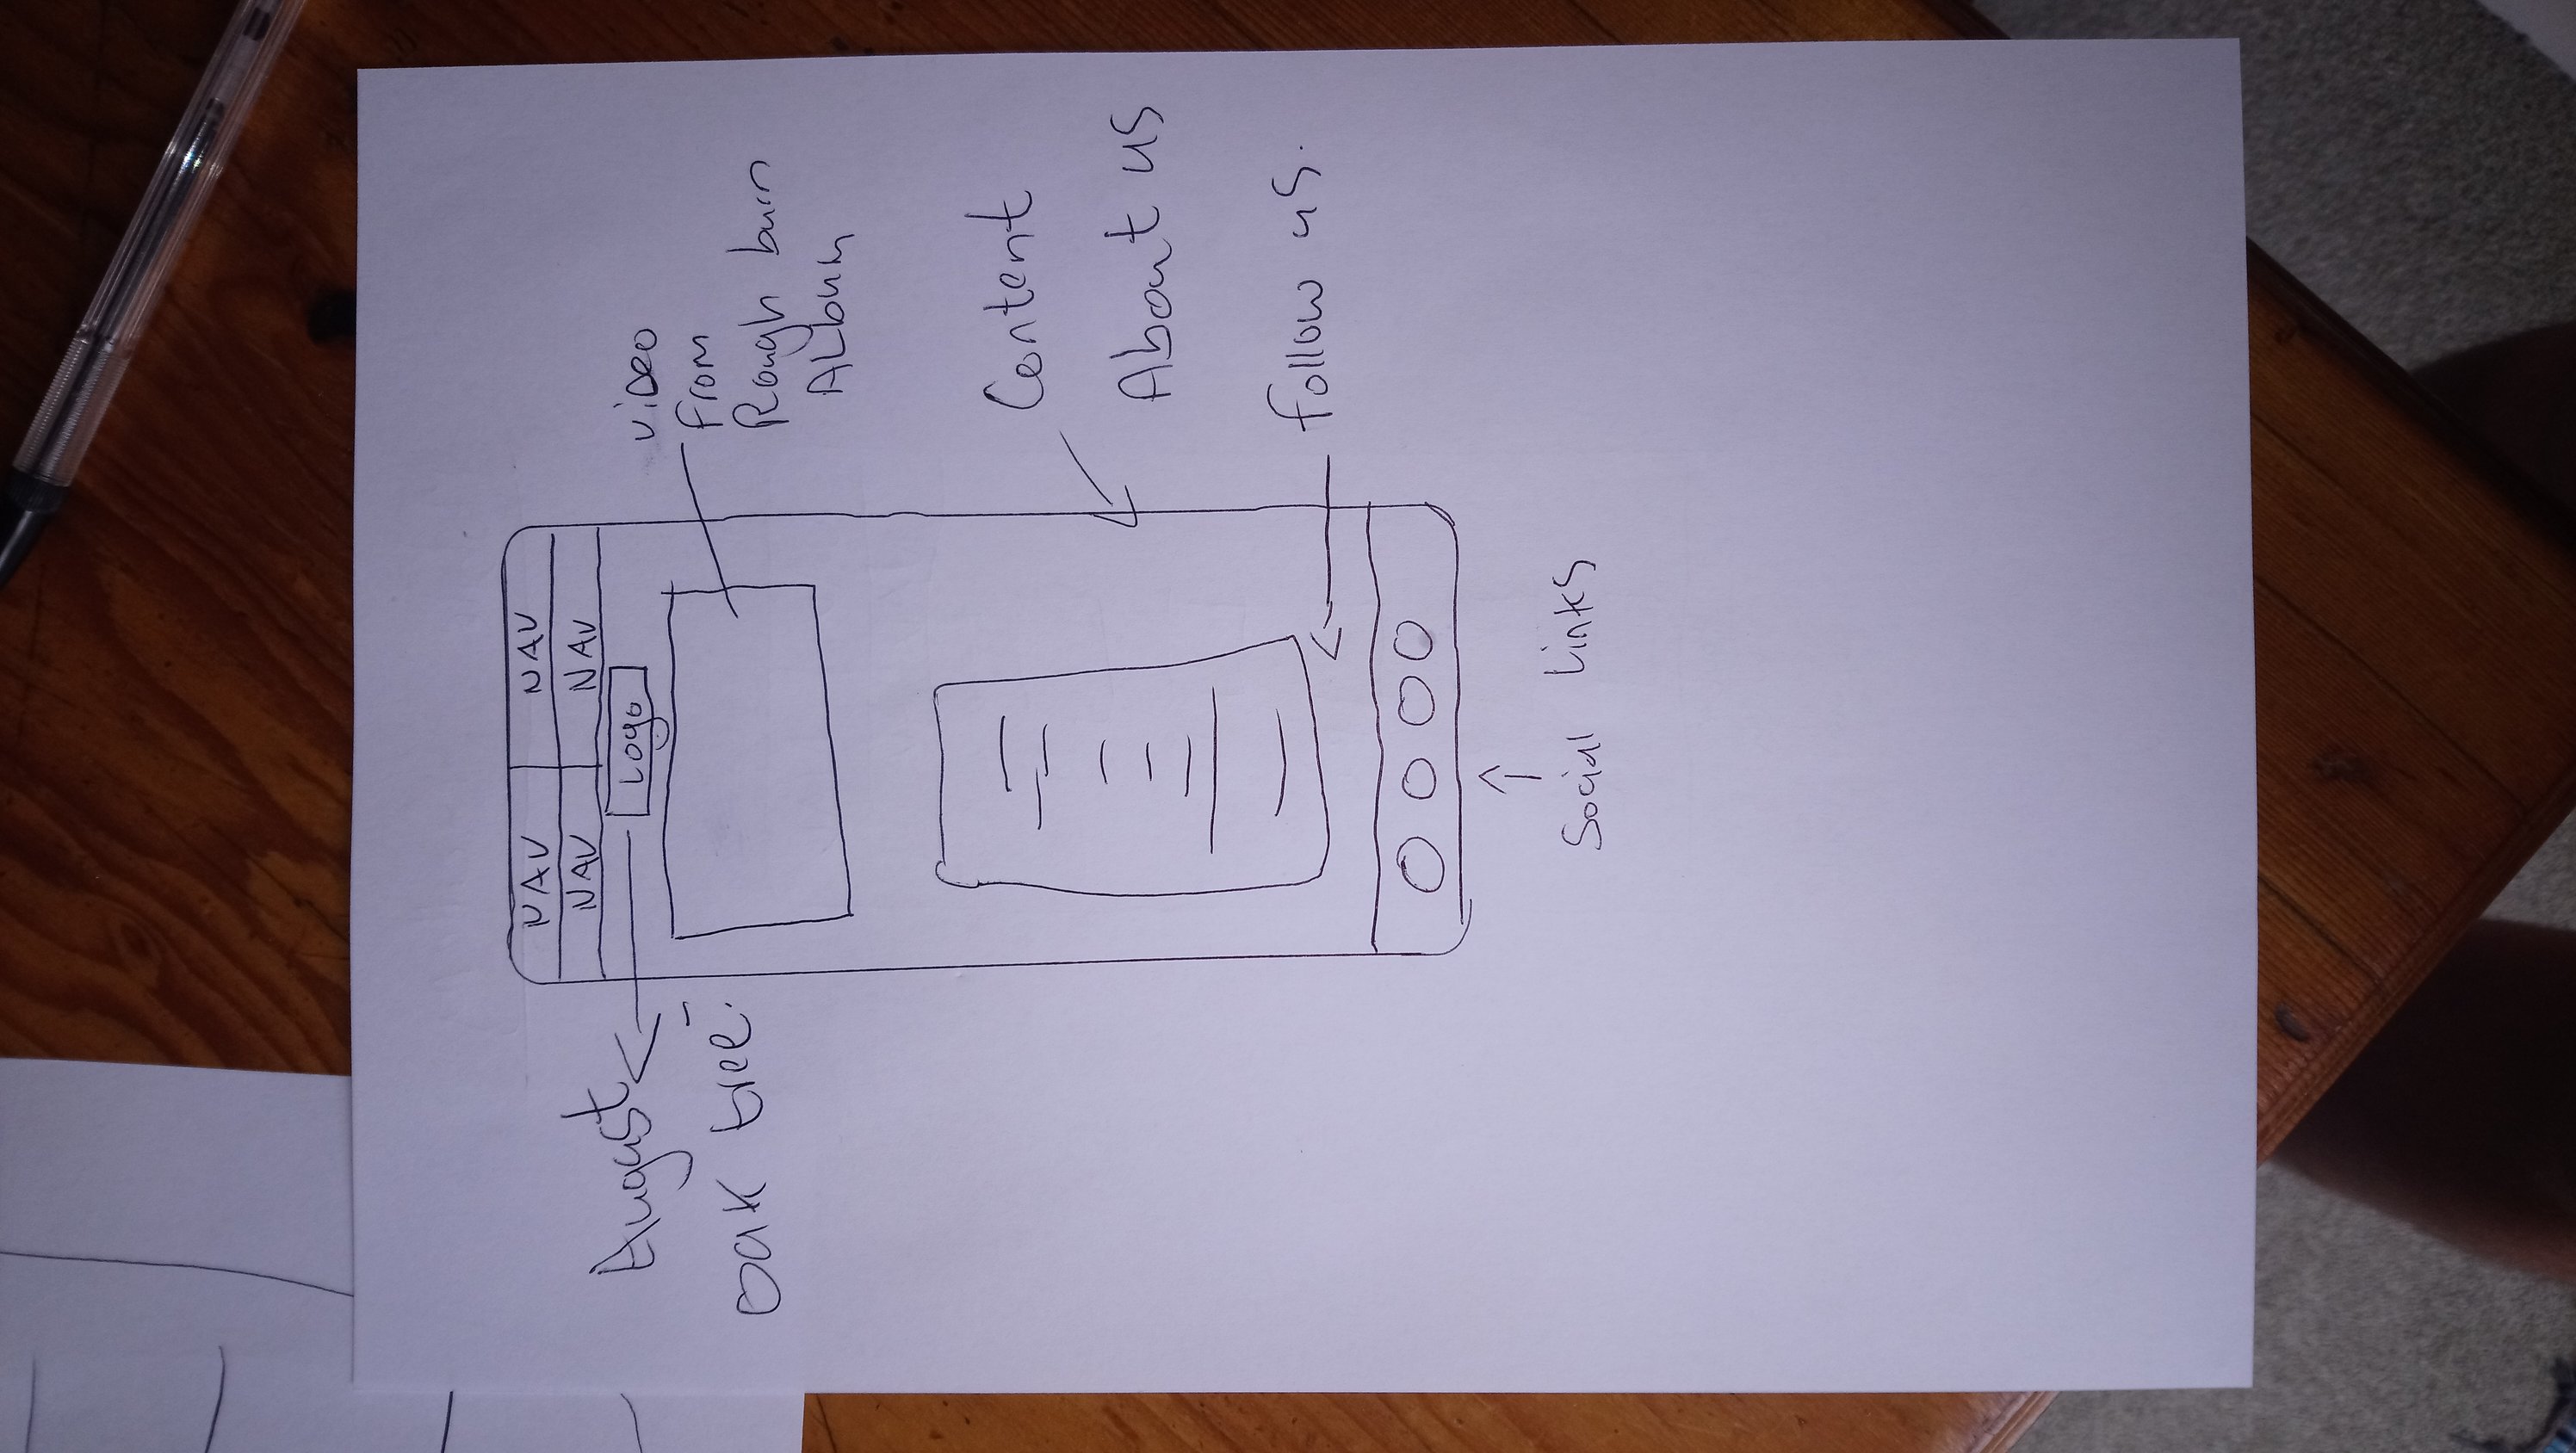 NAV NAV
NAV NAV
Logo
August
Oak tree.
video
from
Rough burn
Album
Content
About us
follow us.
Social Links